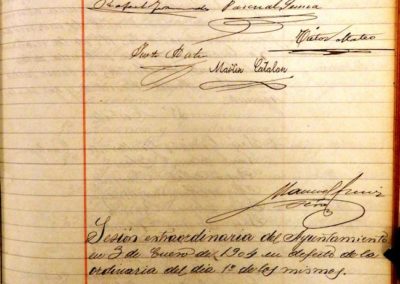 Rafael Pascual
Victor Mateo
Martin Catalan
Manuel
Sesión extraordinaria del Ayuntamiento
en 3 de Enero de 1904 en defecto de la
ordinaria del dia 1º de los mismos.